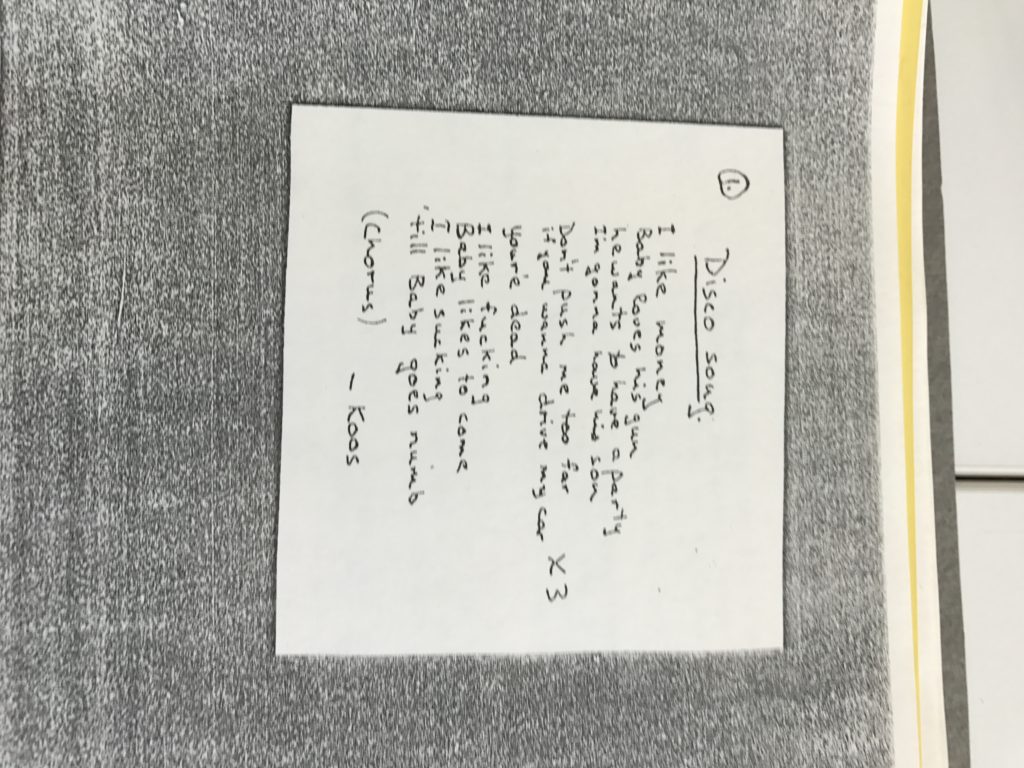 1.
Disco song.
I like money
Baby loves his gun
he wants to have a party
Im gonna have his son
Don't push me too far
if you wanna drive my car X3
you're dead
I like fucking
Baby likes to come
I like sucking
'till Baby goes numb
(Chorus) - Koos